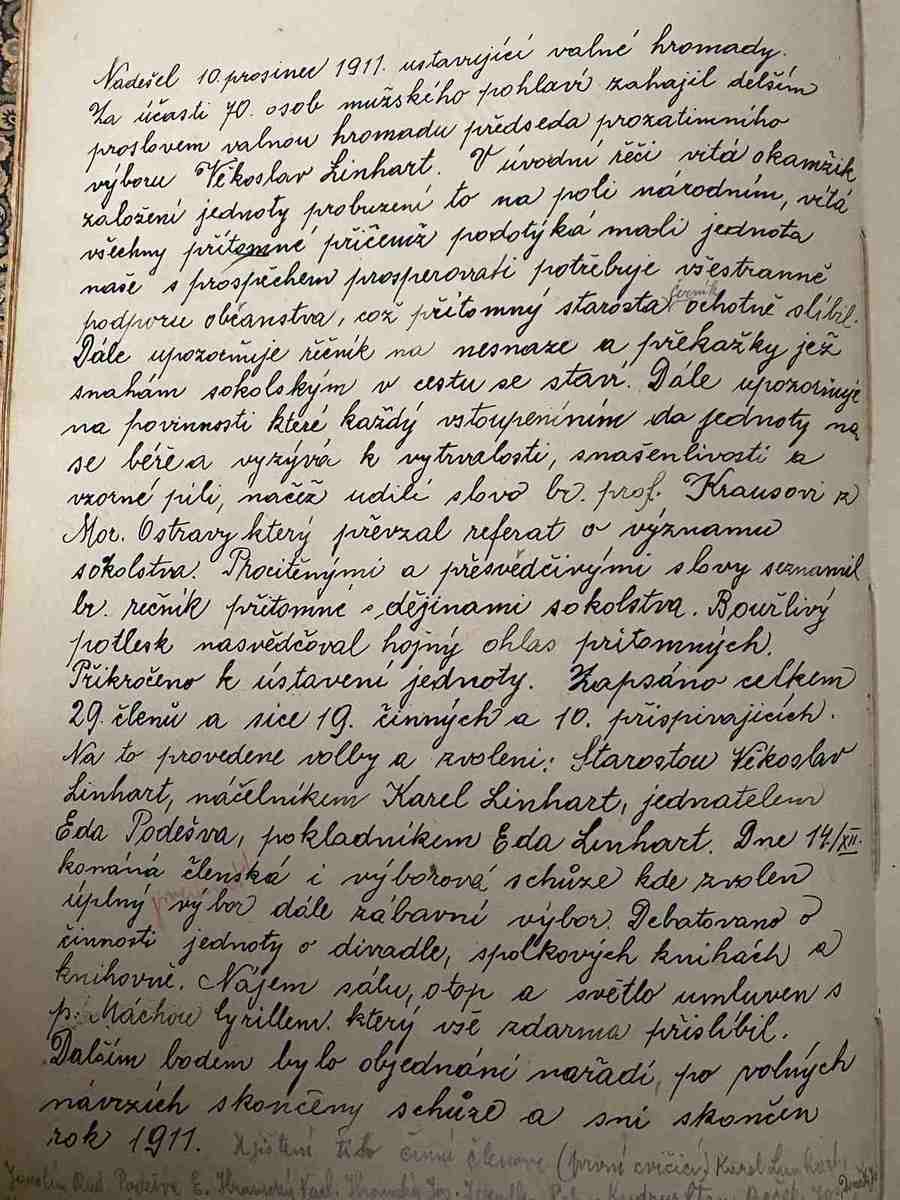 Nadešel 10. prosinec 1911. ustavující valné hromady.
Za účasti 70. osob mužského pohlaví zahájil delším
proslovem valnou hromadu předseda prozatimního
výboru Věkoslav Linhart. V úvodní řeči vítá okamžik
založení jednoty probuzení to na poli národním, vítá
všechny přítomné přičemž podotýká má-li jednota
naše s prospěchem prosperovati potřebuje všestranné
podporu občanstva, což přítomný starosta ochotně slíbil.
Dále upozorňuje řečník na nesnáze a překážky jež
snahám sokolským v cestu se staví. Dále upozorňuje
na povinnosti které každý vstoupeníním do jednoty na
se béře a vyzývá k vytrvalosti, snášenlivosti a
vzorné píli, načež udílí slovo br. prof. Krausovi z
Mor. Ostravy který převzal referat o významu
sokolstva. Procítěnými a přesvědčivými slovy seznamil
br. řečník přítomné s dějinami sokolstva. Bouřlivý
potlesk nasvědčoval hojný ohlas přítomných.
Přikročeno k ústavení jednoty. Zapsáno celkem
29. členů a sice 19. činných a 10. přispívajících.
Na to provedene volby a zvoleni: Starostou Věkoslav
Linhart, náčelníkem Karel Linhart, jednatelem
Eda Poděšva, pokladníkem Eda Linhart. Dne 14/XII.
konáná členská i výborová schůze kde zvolen
úplný výbor dále zábavní výbor. Debatováno o
činnosti jednoty o divadle, spolkových knihách a
knihovně. Nájem sálu, otop a světlo umluven s
p. Máchou Cyrillem. který vše zdarma přislíbil.
Dalším bodem bylo objednání nářadí, po volných
návrzích skončeny schůze a sní skončen
rok 1911. Zjištěni tito činní členove (první cvičící) Karel Linhart,
Poděšva E.